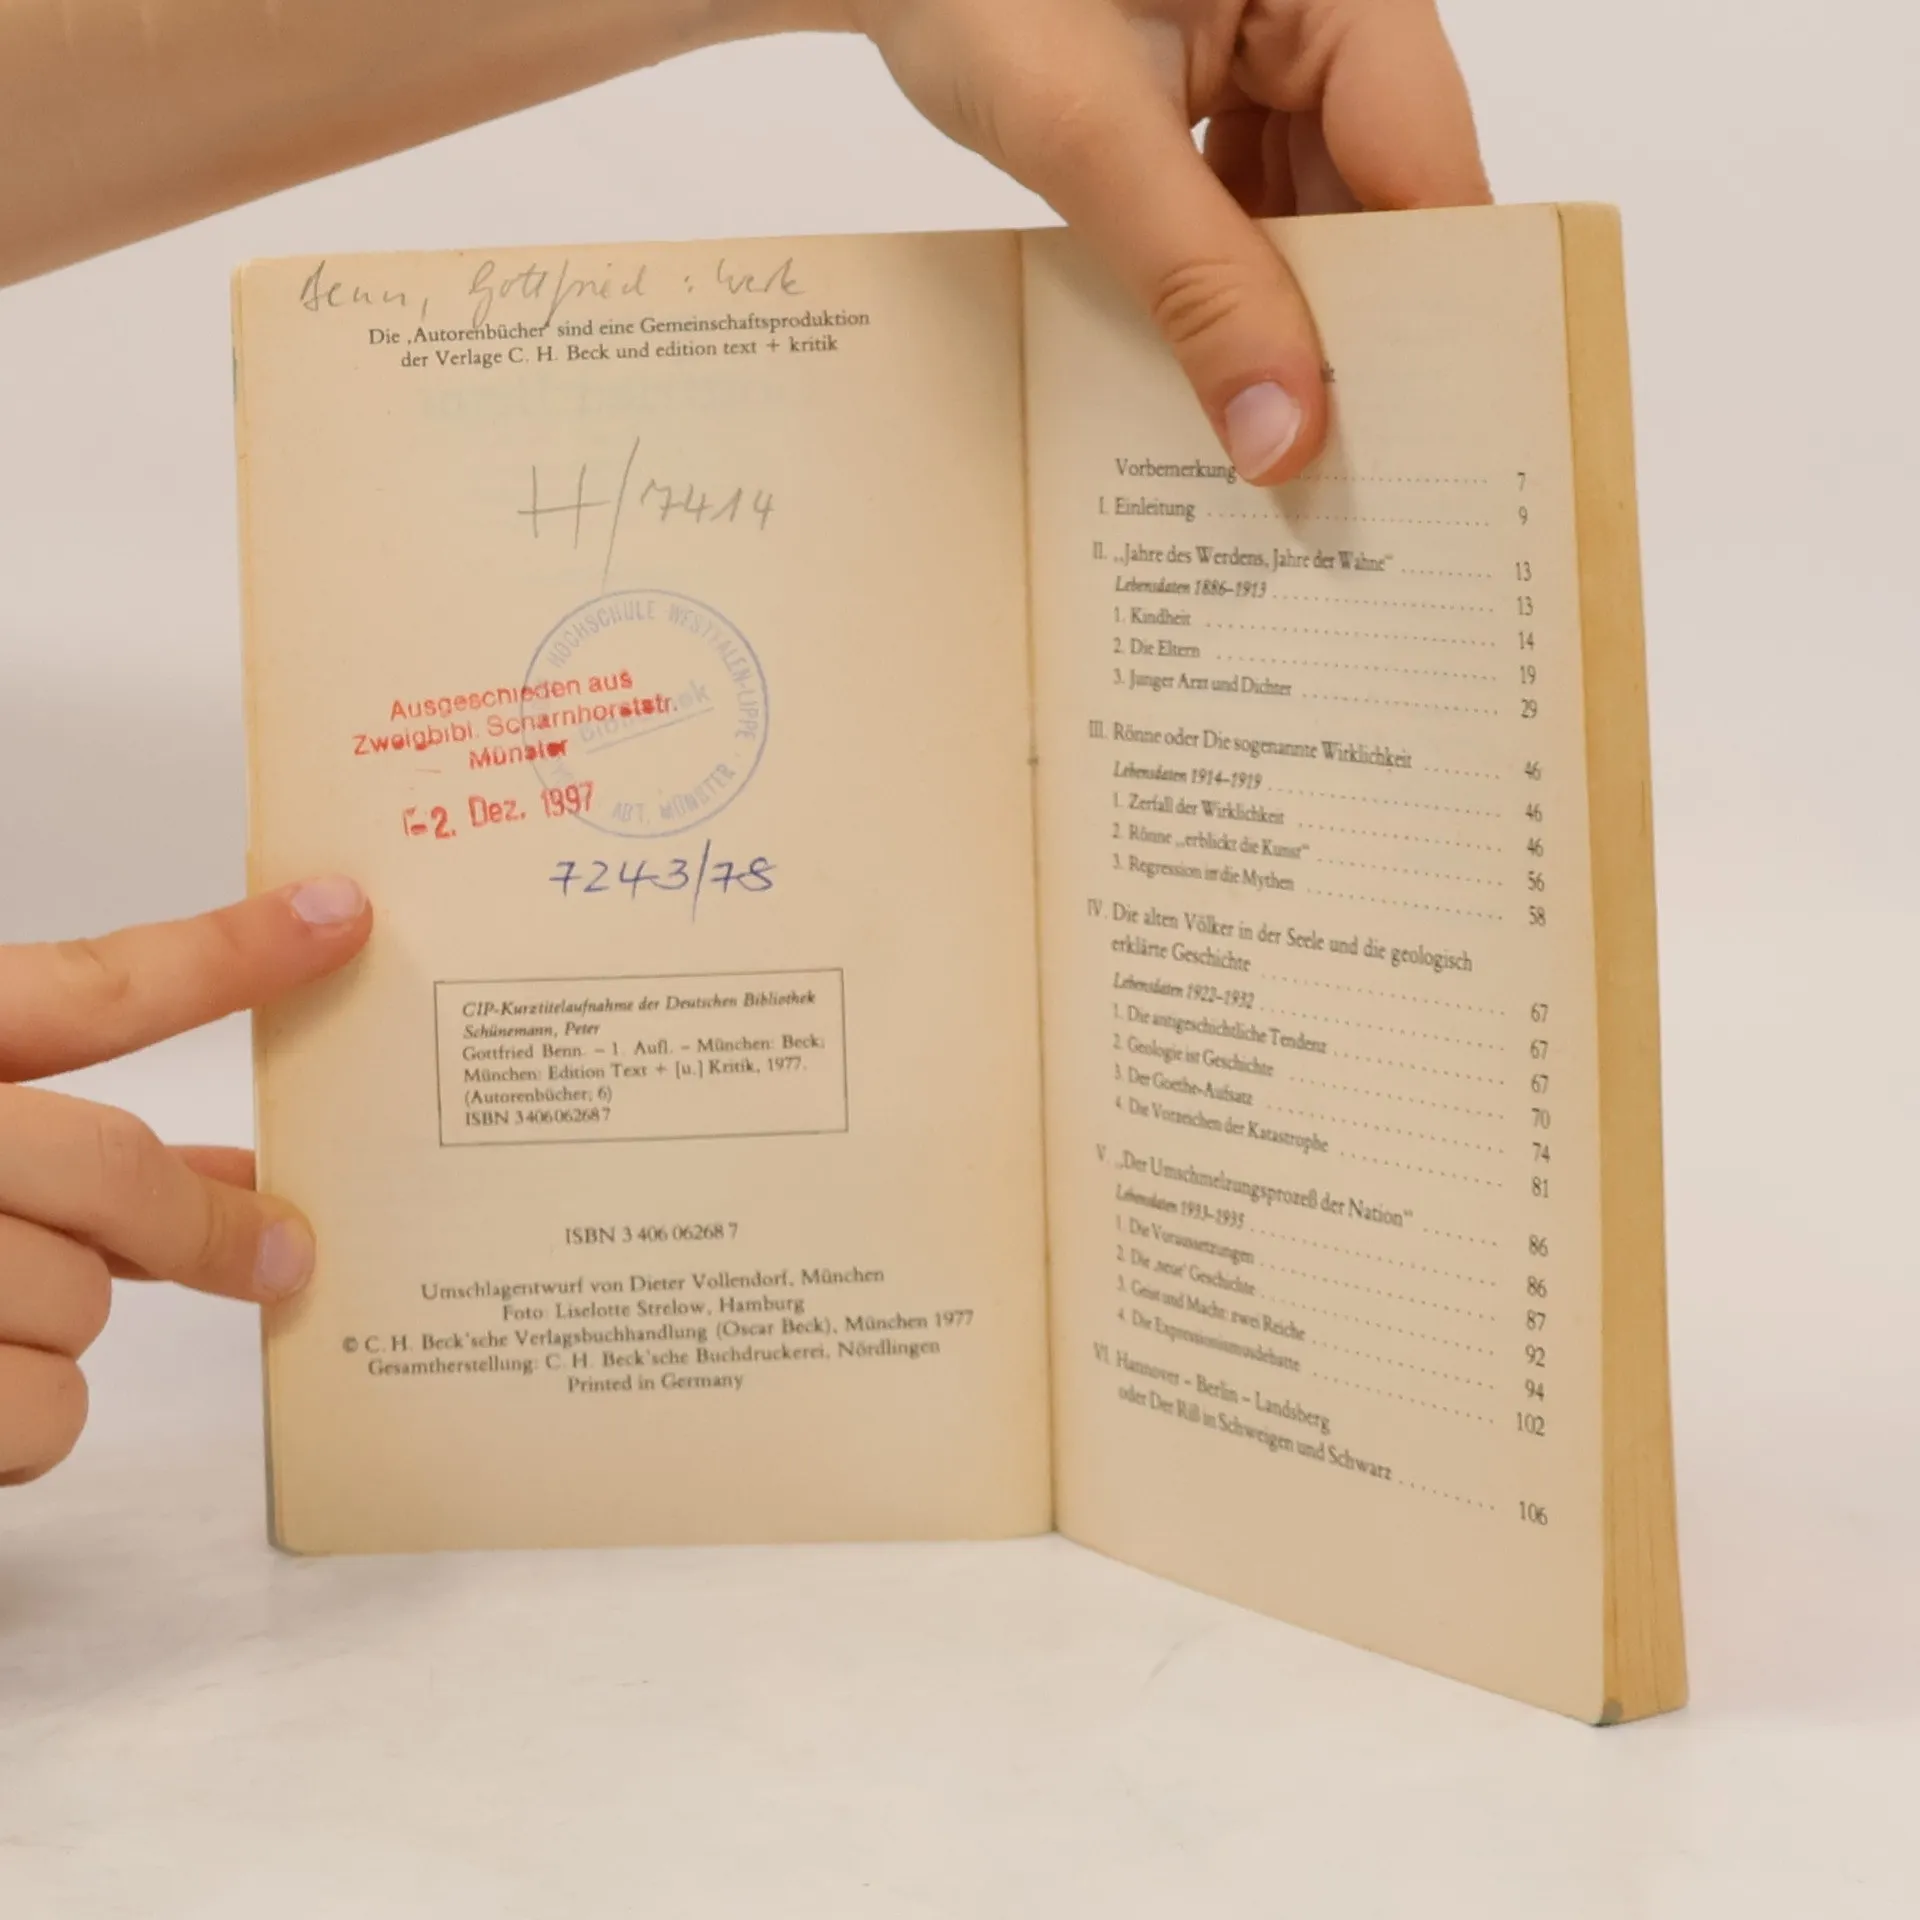 Benn, Gottfried : Werk
Die ‚Autorenbücher‘ sind eine Gemeinschaftsproduktion
der Verlage C. H. Beck und edition text + kritik
H/7414
HOCHSCHULE WESTFALEN-LIPPE
Bibliothek
ABT. MÜNSTER
Ausgeschieden aus
Zweigbibl. Scharnhorststr.
Münster
-2. Dez. 1997
7243/78
CIP-Kurztitelaufnahme der Deutschen Bibliothek
Schünemann, Peter
Gottfried Benn. – 1. Aufl. – München: Beck;
München: Edition Text + [u.] Kritik, 1977.
(Autorenbücher; 6)
ISBN 3 406 06268 7
ISBN 3 406 06268 7
Umschlagentwurf von Dieter Vollendorf, München
Foto: Liselotte Strelow, Hamburg
© C. H. Beck'sche Verlagsbuchhandlung (Oscar Beck), München 1977
Gesamtherstellung: C. H. Beck'sche Buchdruckerei, Nördlingen
Printed in Germany
Vorbemerkung ........ 7
I. Einleitung ........ 9
II. „Jahre des Werdens, Jahre der Wahne“ ........ 13
Lebensdaten 1886–1913 ........ 13
1. Kindheit ........ 14
2. Die Eltern ........ 19
3. Junger Arzt und Dichter ........ 29
III. Rönne oder Die sogenannte Wirklichkeit ........ 46
Lebensdaten 1914–1919 ........ 46
1. Zerfall der Wirklichkeit ........ 46
2. Rönne „erblickt die Kunst“ ........ 56
3. Regression in die Mythen ........ 58
IV. Die alten Völker in der Seele und die geologisch
erklärte Geschichte ........ 67
Lebensdaten 1922–1932 ........ 67
1. Die antigeschichtliche Tendenz ........ 67
2. Geologie ist Geschichte ........ 70
3. Der Goethe-Aufsatz ........ 74
4. Die Vorzeichen der Katastrophe ........ 81
V. „Der Umschmelzungsprozeß der Nation“ ........ 86
Lebensdaten 1933–1935 ........ 86
1. Die Voraussetzungen ........ 87
2. Die ‚neue‘ Geschichte ........ 92
3. Geist und Macht: zwei Reiche ........ 94
4. Die Expressionismusdebatte ........ 102
VI. Hannover – Berlin – Landsberg
oder Der Riß in Schweigen und Schwarz ........ 106